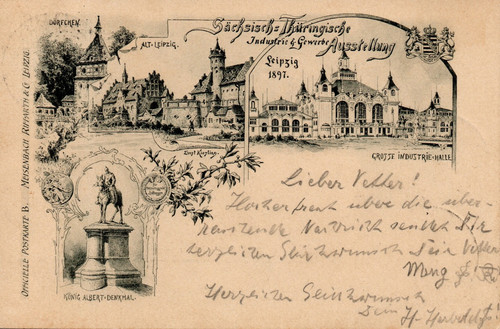 DÖRFCHEN.
ALT-LEIPZIG.
Sächsisch-Thüringische
Industrie & Gewerbe
Ausstellung
Leipzig
1897.
GROSSE INDUSTRIE-HALLE
KÖNIG ALBERT-DENKMAL.
OFFICIELLE POSTKARTE B. MEISENBACH RIFFARTH & Co LEIPZIG.
Lieber Vetter!
Hocherfreut über die über-
raschende Nachricht sendet Dir
herzlichen Glückwunsch Dein Vetter
Herzlichen Glückwunsch
Dein